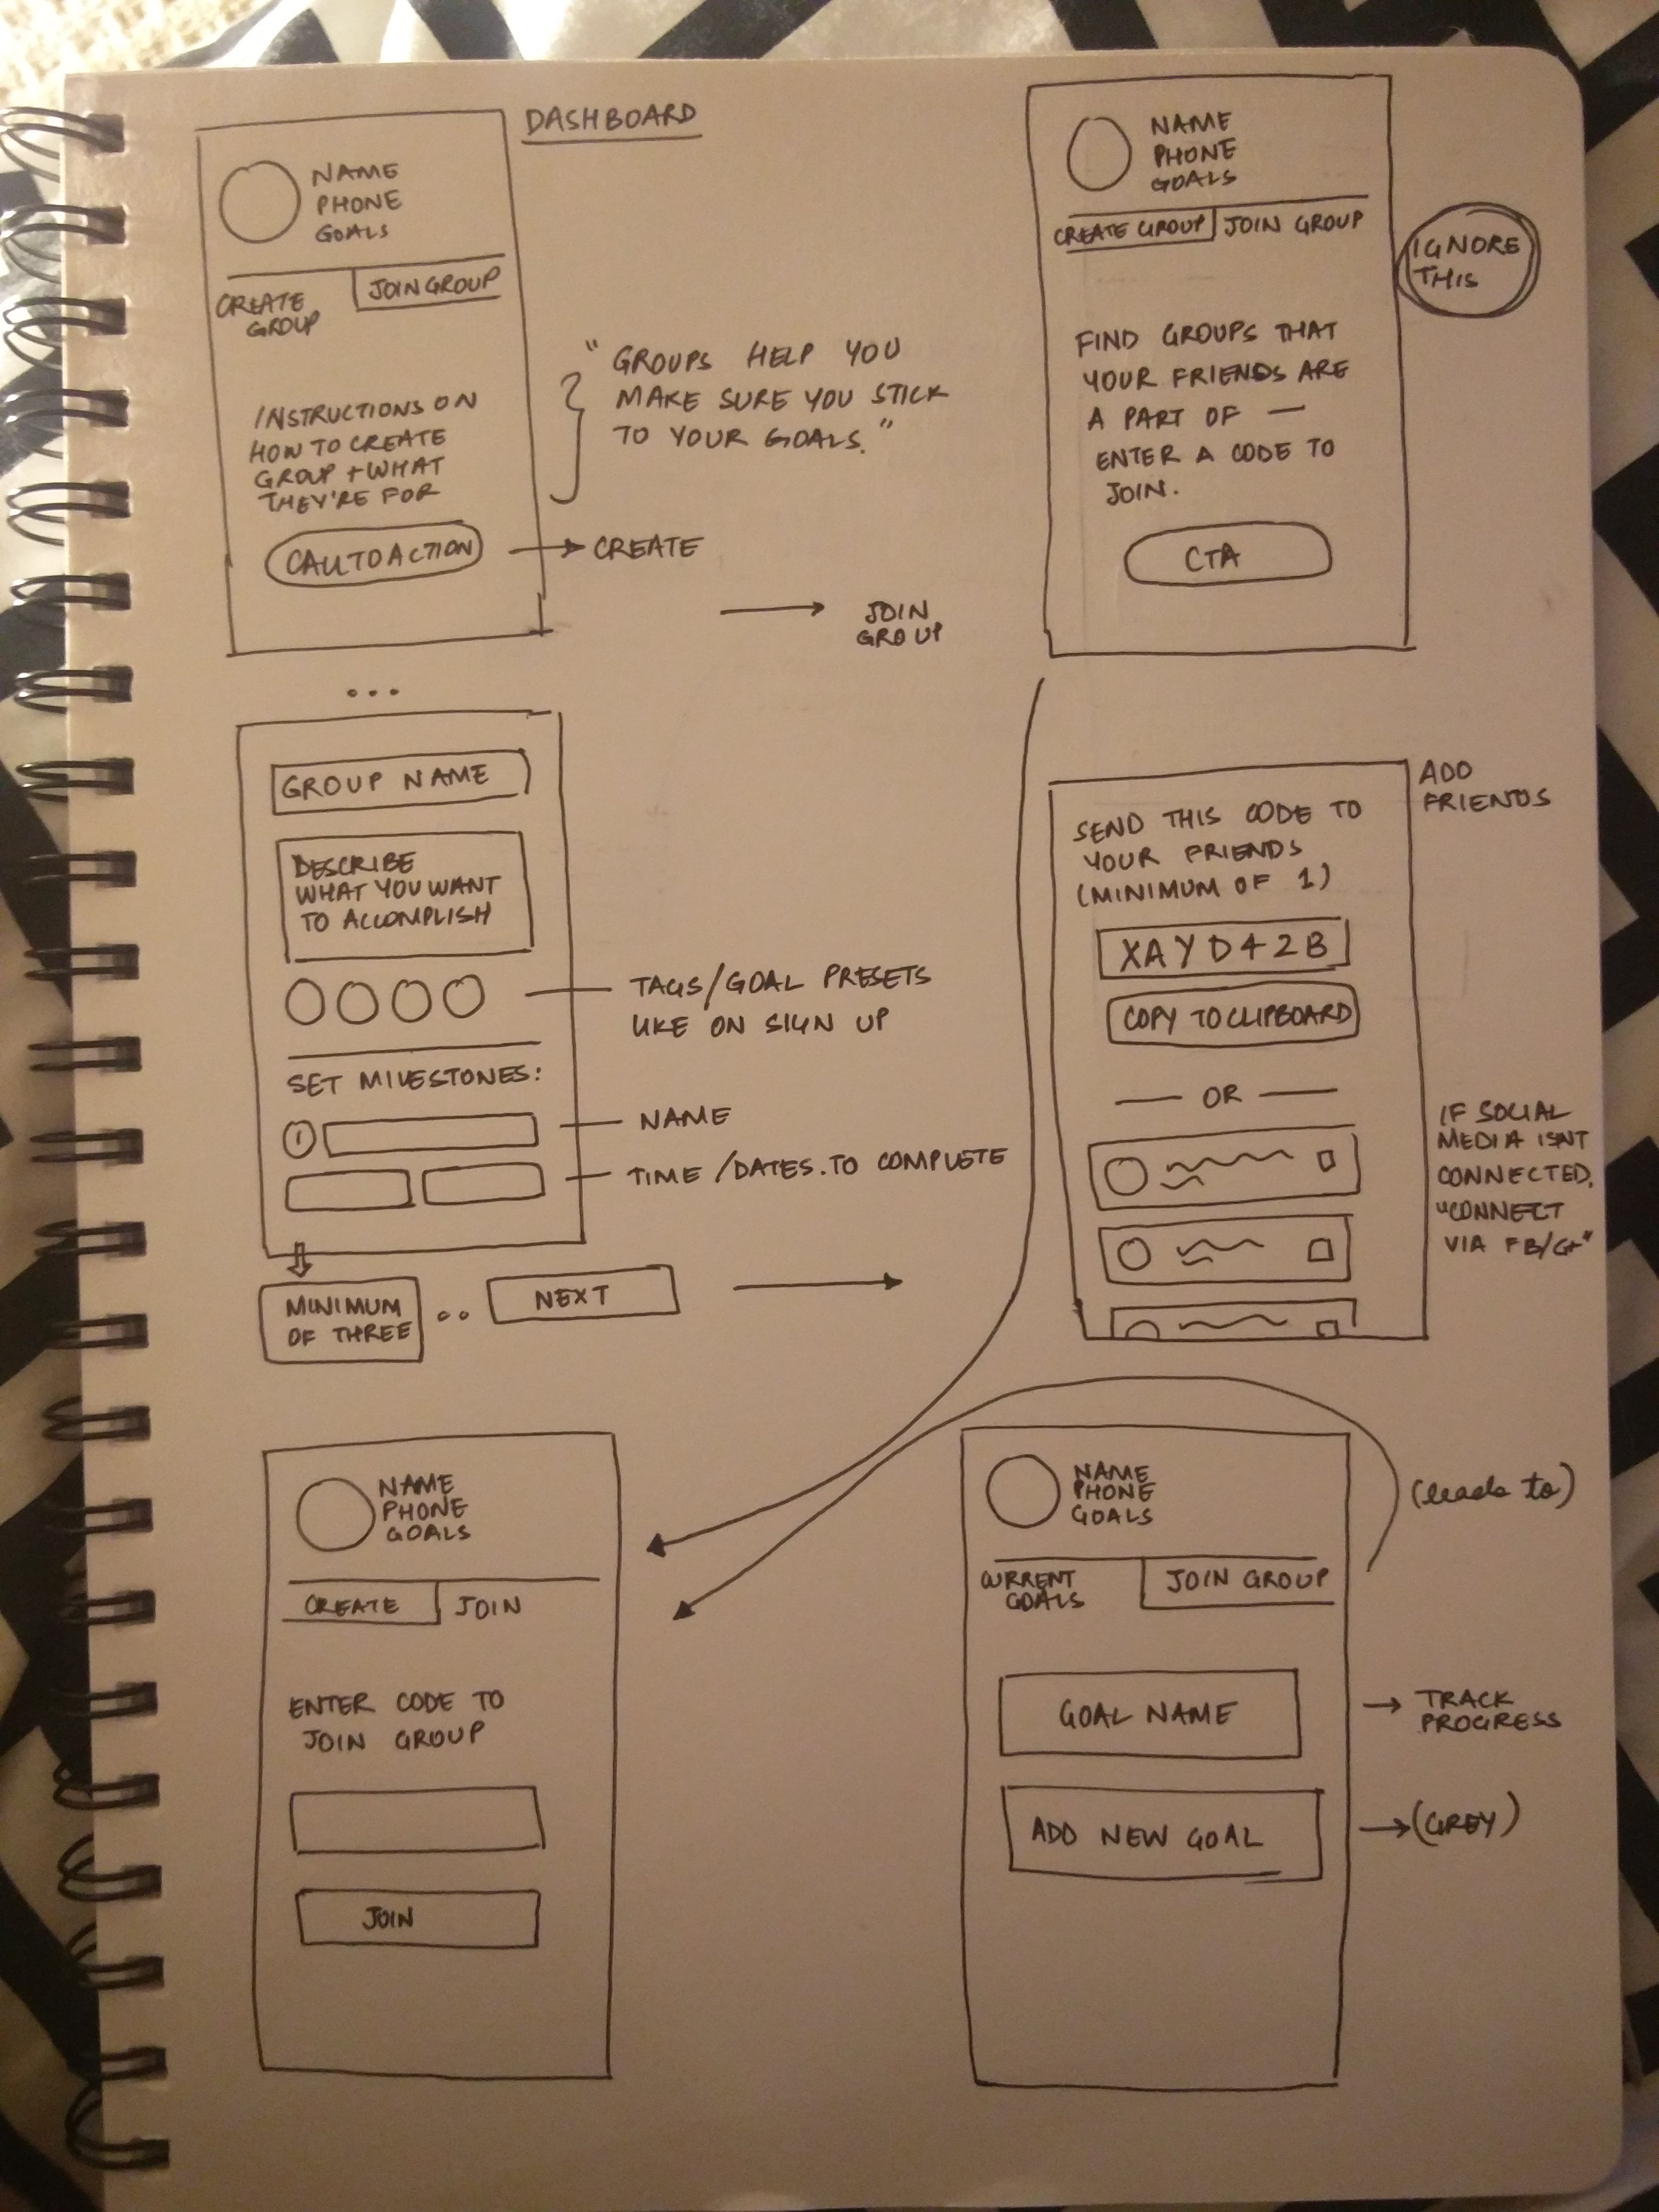 DASHBOARD
NAME
PHONE
GOALS
CREATE
GROUP
JOIN GROUP
INSTRUCTIONS ON
HOW TO CREATE
GROUP + WHAT
THEY'RE FOR
CALL TO ACTION
"GROUPS HELP YOU
MAKE SURE YOU STICK
TO YOUR GOALS."
CREATE
JOIN
GROUP
NAME
PHONE
GOALS
CREATE GROUP
JOIN GROUP
IGNORE
THIS
FIND GROUPS THAT
YOUR FRIENDS ARE
A PART OF —
ENTER A CODE TO
JOIN.
CTA
...
GROUP NAME
DESCRIBE
WHAT YOU WANT
TO ACCOMPLISH
TAGS/GOAL PRESETS
LIKE ON SIGN UP
SET MILESTONES:
1
NAME
TIME/DATES.TO COMPLETE
MINIMUM
OF THREE
..
NEXT
ADD
FRIENDS
SEND THIS CODE TO
YOUR FRIENDS
(MINIMUM OF 1)
XAYD42B
COPY TO CLIPBOARD
— OR —
IF SOCIAL
MEDIA ISNT
CONNECTED,
"CONNECT
VIA FB/G+"
NAME
PHONE
GOALS
CREATE
JOIN
ENTER CODE TO
JOIN GROUP
JOIN
NAME
PHONE
GOALS
(leads to)
CURRENT
GOALS
JOIN GROUP
GOAL NAME
TRACK
PROGRESS
ADD NEW GOAL
(GREY)